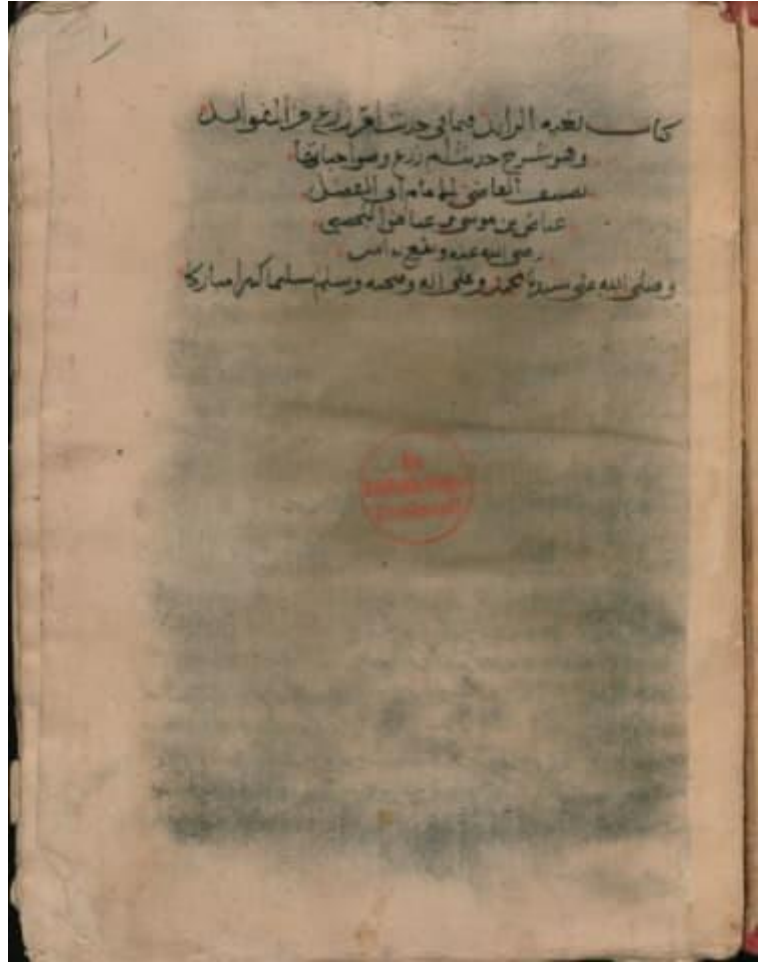 كتاب بغية الرائد فيما في حديث أم زرع من الفوائد
وهو شرح حديث أم زرع وصواحباتها
تصنيف القاضي الإمام أبي الفضل
عياض بن موسى بن عياض اليحصبي
رضي الله عنه ونفع به امين
وصلى الله على سيدنا محمد وعلى اله وصحبه وسلم تسليما كثيرا مباركا